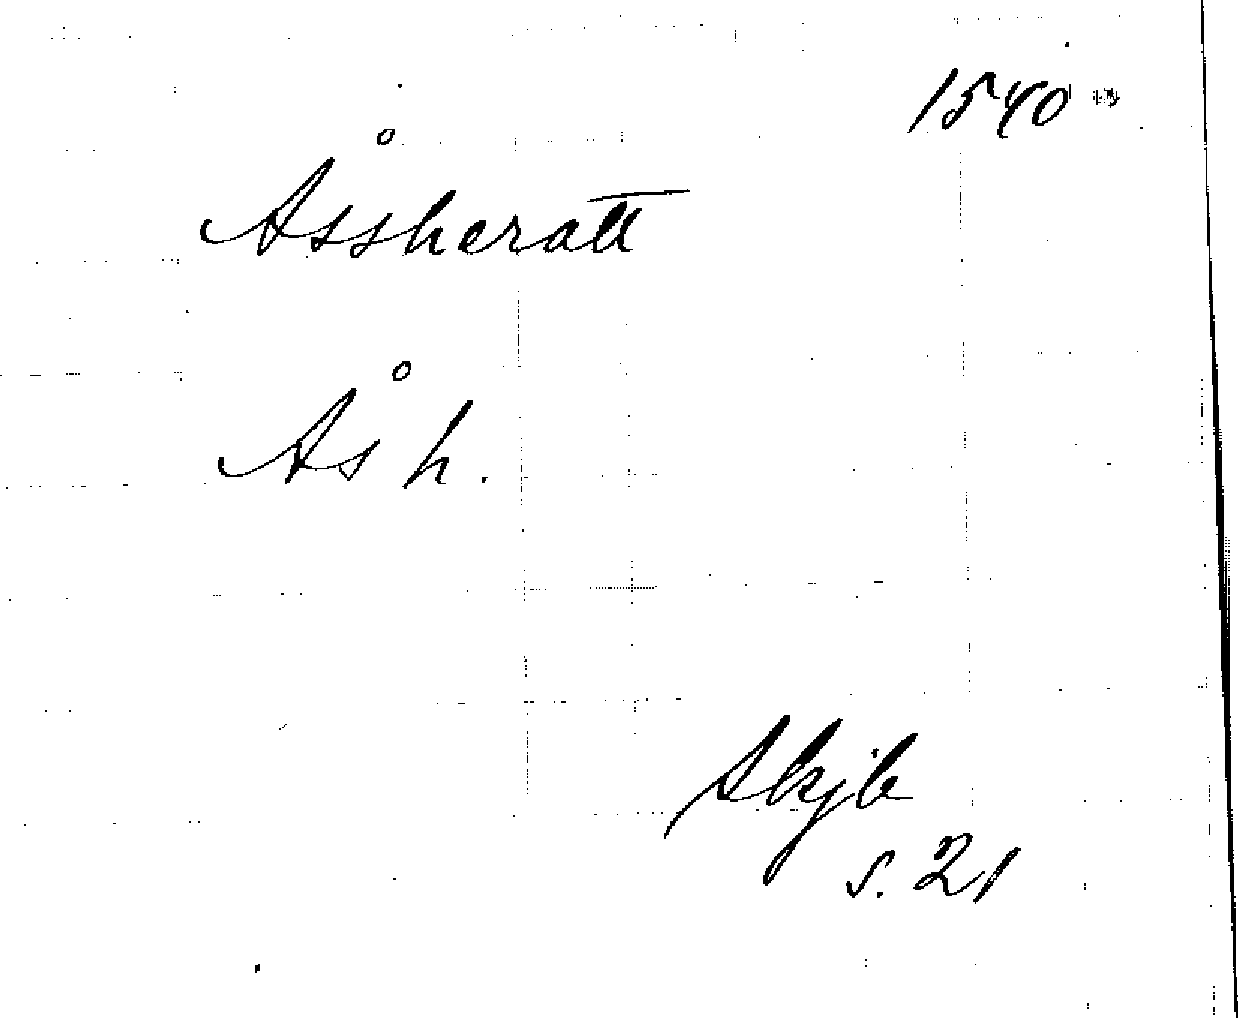 1540
Åssheratt
Ås h.
Skjb
s. 21